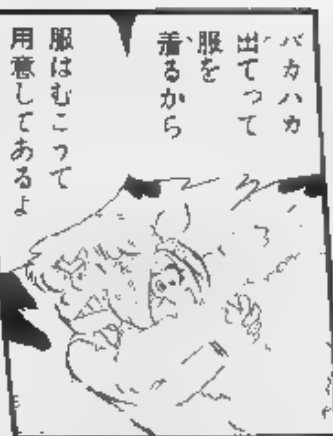 バカハカ
出てって
服を
着るから
服はむこうて
用意してあるよ